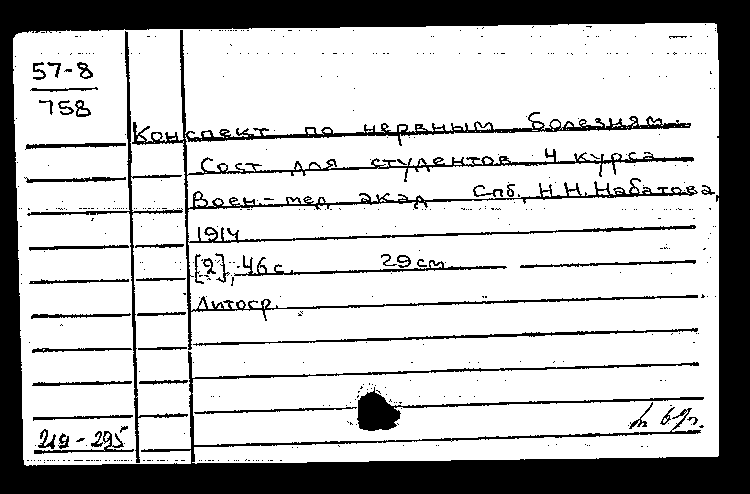 57-8
758
Конспект по нервным болезням.
Сост для студентов 4 курса
Воен.-мед акад Спб, Н.Н. Набатова,
1914
[2], 46 с. 29 см
Литогр.
219-295